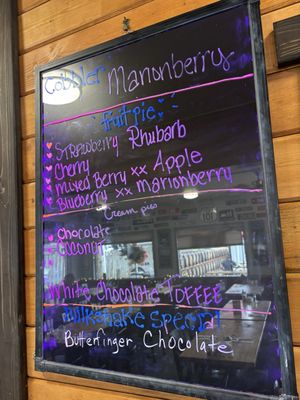 Cobbler Marionberry
fruit pie
Strawberry Rhubarb
Cherry
Mixed Berry xx Apple
Blueberry xx Marionberry
Cream pies
Chocolate
Coconut
White Chocolate TOFFEE
milkshake special
Butterfinger, Chocolate